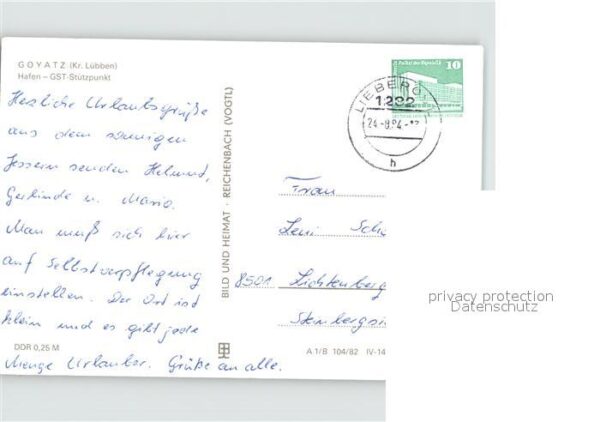 GOYATZ (Kr. Lübben)
Hafen – GST-Stützpunkt
Herzliche Urlaubsgrüße
aus dem sonnigen
Jessern senden Helmut,
Gerlinde u. Mario.
Man muß sich hier
auf Selbstverpflegung
einstellen. Der Ort ist
klein und es gibt jede
Menge Urlauber. Grüße an alle.
DDR 0,25 M
BILD UND HEIMAT · REICHENBACH (VOGTL)
A 1/B 104/82 IV-14
10
LIEBERO
24.-8.84.-
h
Frau
Leni
8501 Lichtenberg
privacy protection
Datenschutz